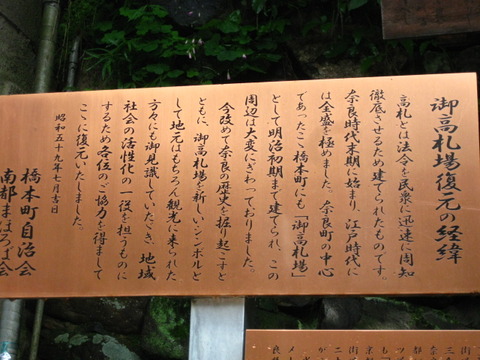 御高札場復元の経緯
高札とは法令を民衆に迅速に周知
徹底させるため建てられたものです。
奈良時代末期に始まり、江戸時代に
は全盛を極めました。奈良町の中心
であったここ橋本町にも「御高札場」
として明治初期まで建てられ、この
周辺は大変にぎわっておりました。
今改めて奈良の歴史を掘り起こすと
ともに、御高札場を新しいシンボルと
して地元はもちろん観光に来られた
方々にも御見識していただき、地域
社会の活性化の一役を担うものに
するため各位のご協力を得まして
ここに復元いたしました。
昭和五十九年七月吉日
橋本町自治会
南都まほろば会